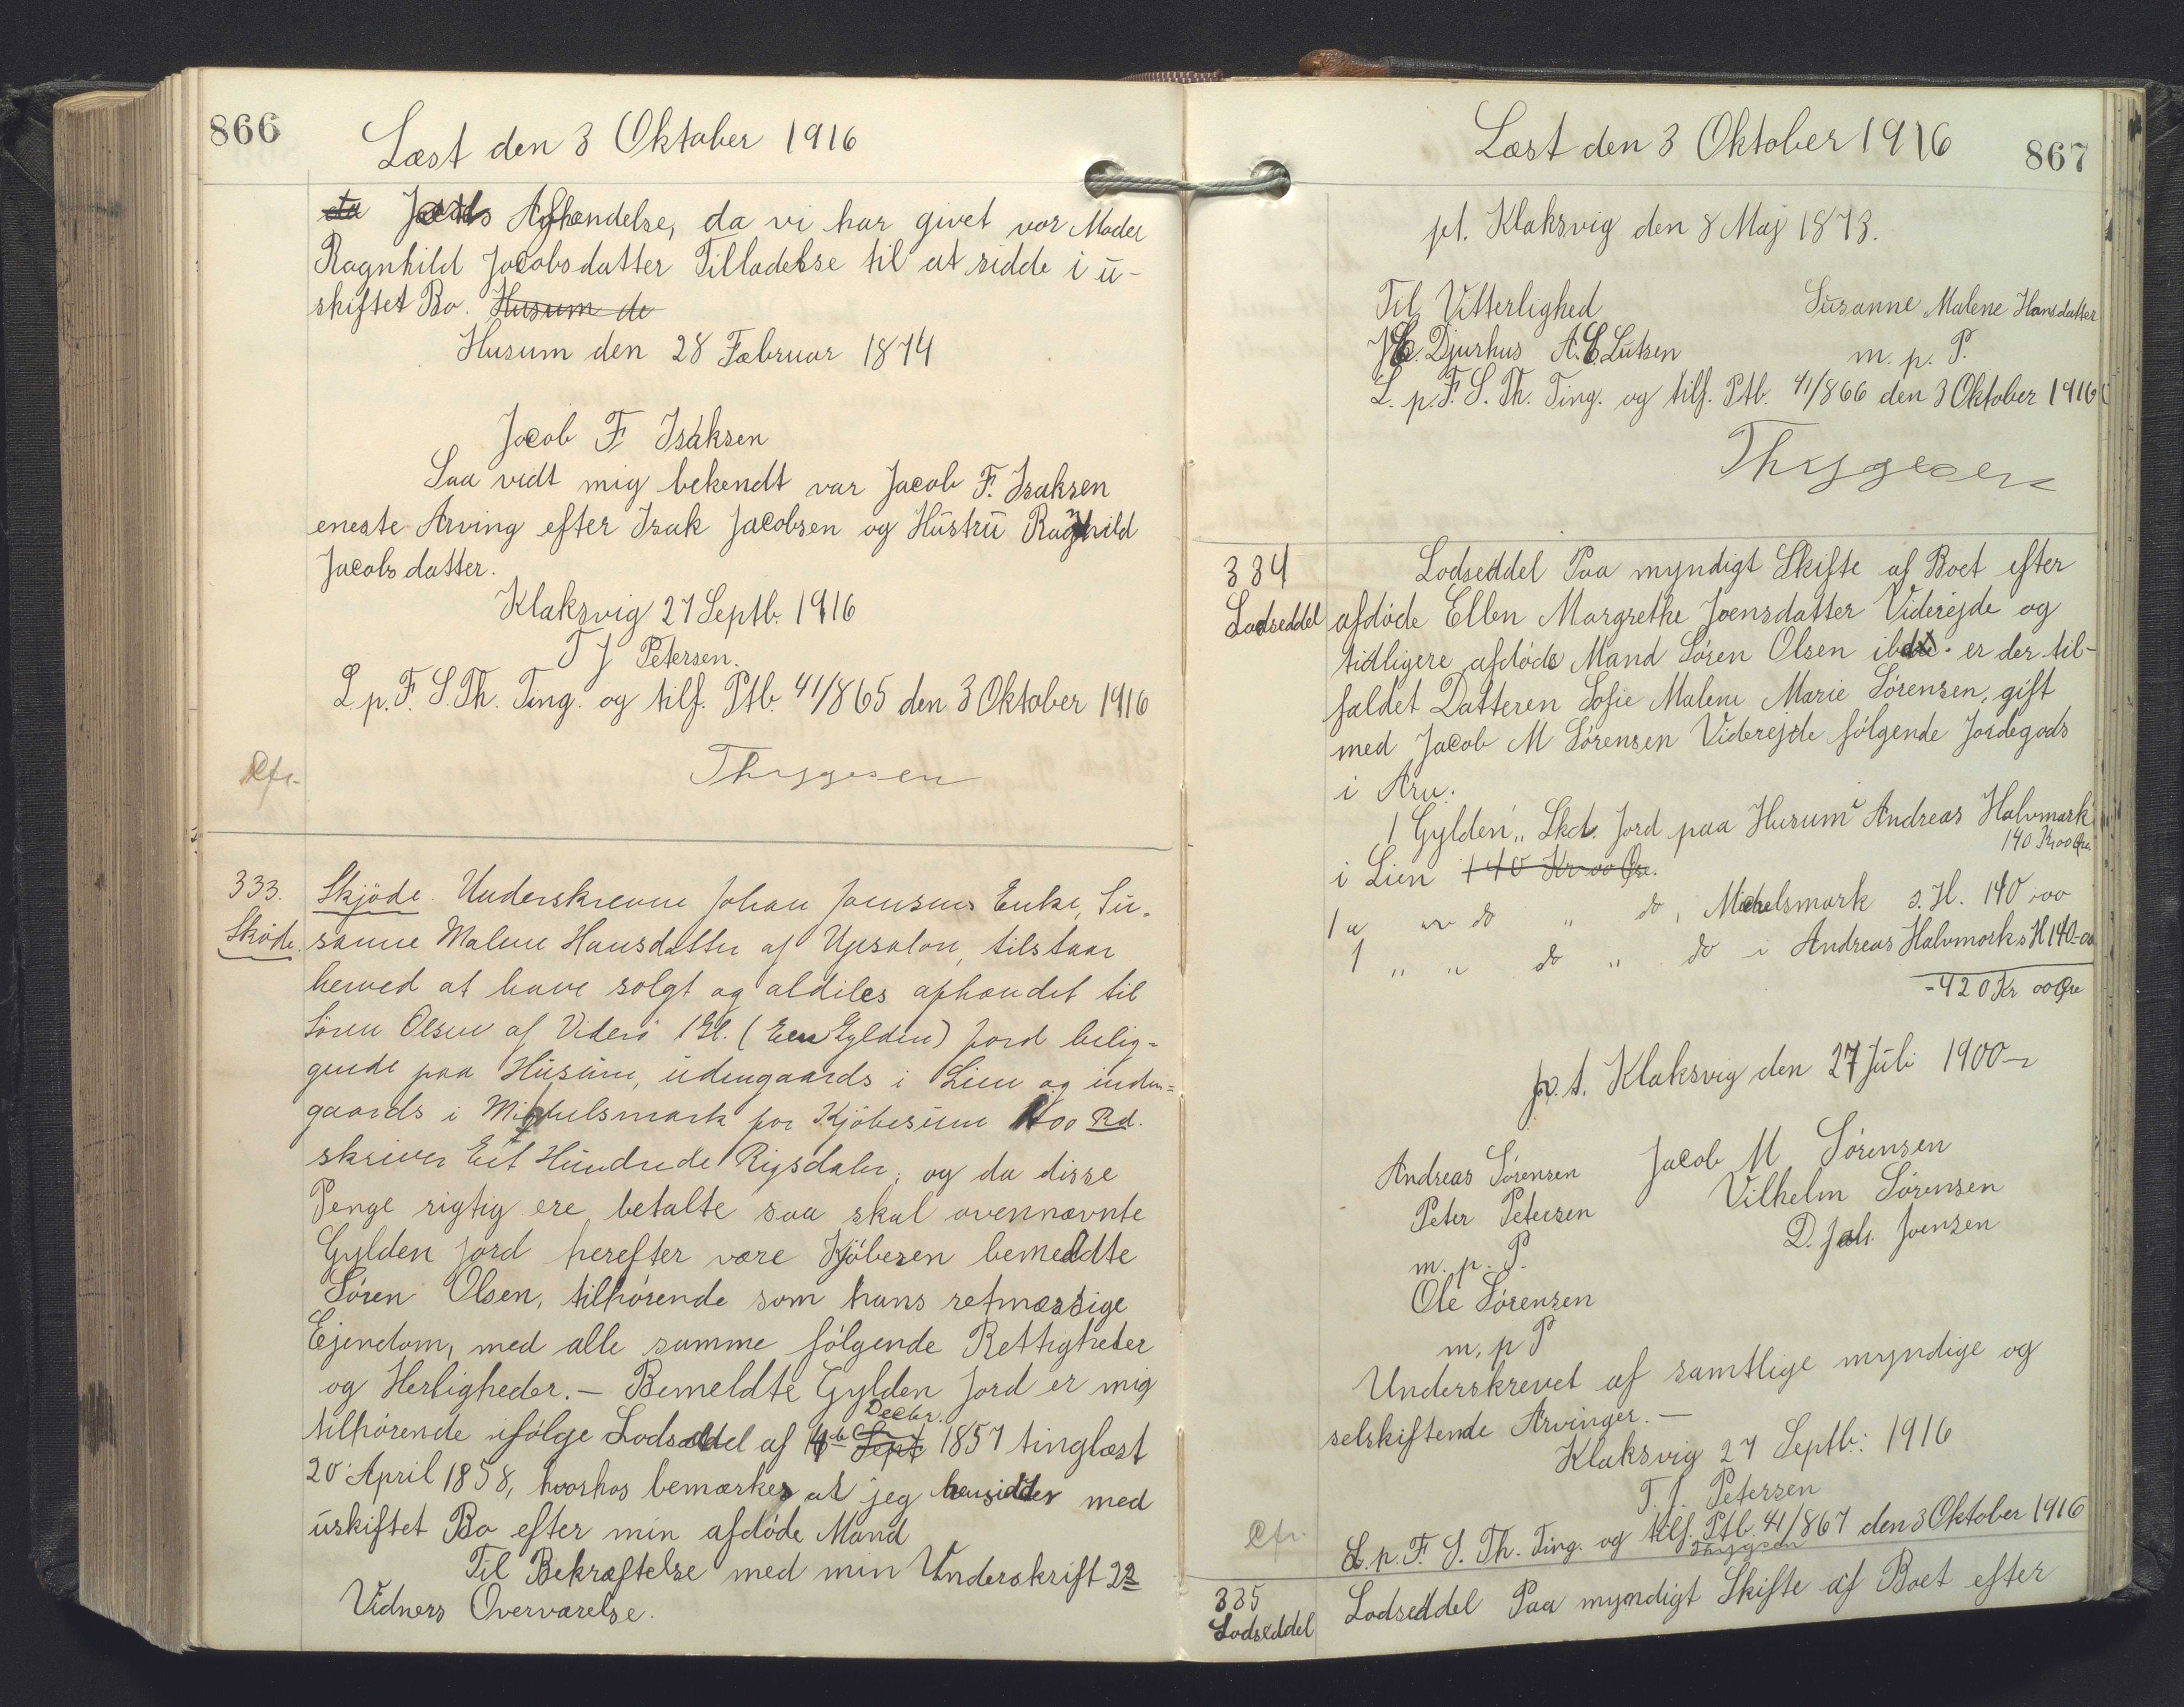 866
Læst den 3 Oktober 1916
Jords Afhændelse, da vi har givet vor Moder
Ragnhild Jacobsdatter Tilladelse til at sidde i u-
skiftet Bo. Husum de
Husum den 28 Februar 1874
Jacob F. Isaksen
Saa vidt mig bekendt var Jacob F. Isaksen
eneste Arving efter Isak Jacobsen og Hustru Ragnhild
Jacobsdatter.
Klaksvig 27 Septb. 1916
T J Petersen.
L. p. F. S. Th. Ting. og tilf. Ptb. 41/865 den 3 Oktober 1916
Cfr.
Thygesen
333.
Sköde.
Skjöde. Underskrevne Johan Joensens Enke, Su-
sanne Malene Hansdatter af Upsalon, tilstaar
herved at have solgt og aldiles afhændet til
Sören Olsen af Viderö 1 Gl. (Een Gylden) Jord belig-
gende paa Husum, udengaards i Lien og inden-
gaards i Mikkelsmark for Kjöbesum 100 Rd.
skriver Eet Hundrede Rigsdaler; og da disse
Penge rigtig ere betalte saa skal ovennævnte
Gylden Jord herefter være Kjöberen bemeldte
Sören Olsen, tilhörende som hans retmæssige
Ejendom, med alle samme fölgende Rettigheder
og Herligheder. — Bemeldte Gylden Jord er mig
tilhörende ifölge Lodseddel af 4de Sept Decbr. 1857 tinglæst
20 April 1858, hvorhos bemærkes at jeg hensidder med
uskiftet Bo efter min afdöde Mand
Til Bekræftelse med min Underskrift 22
Vidners Overværelse.
Læst den 3 Oktober 1916
867
pt. Klaksvig den 8 Maj 1873.
Til Vitterlighed
Susanne Malene Hansdatter
J.C. Djurhus A.C. Lützen
m. p. P.
L. p. F. S. Th. Ting. og tilf. Ptb. 41/866 den 3 Oktober 1916
Thygesen
334
Lodseddel
Lodseddel Paa myndigt Skifte af Boet efter
afdöde Ellen Margrethe Joensdatter Viderejde og
tidligere afdöde Mand Sören Olsen ibd. er der til-
faldet Datteren Sofie Malene Marie Sörensen, gift
med Jacob M Sörensen Viderejde fölgende Jordegods
i Arv:
1 Gylden „ Skd. Jord paa Husum i Andreas Halvmark
140 Kr 00 Öre
i Lien 140 Kr 00 Öre.
1 „ „ do „ do, Michelsmark s. H. 140 „ 00
1 „ „ do „ do i Andreas Halvmarks H 140-00
- 420 Kr 00 Öre
p. t. Klaksvig den 27 Juli 1900
Andreas Sörensen Jacob M Sörensen
Peter Petersen Vilhelm Sörensen
m. p. P. D. Joh. Joensen
Ole Sörensen
m. p P
Underskrevet af samtlige myndige og
selskiftende Arvinger. —
Klaksvig 27 Septb: 1916
T. J. Petersen
Cfr.
L. p. F. S. Th. Ting. og tilf. Ptb. 41/867 den 3 Oktober 1916
Thygesen
335
Lodseddel
Lodseddel Paa myndigt Skifte af Boet efter